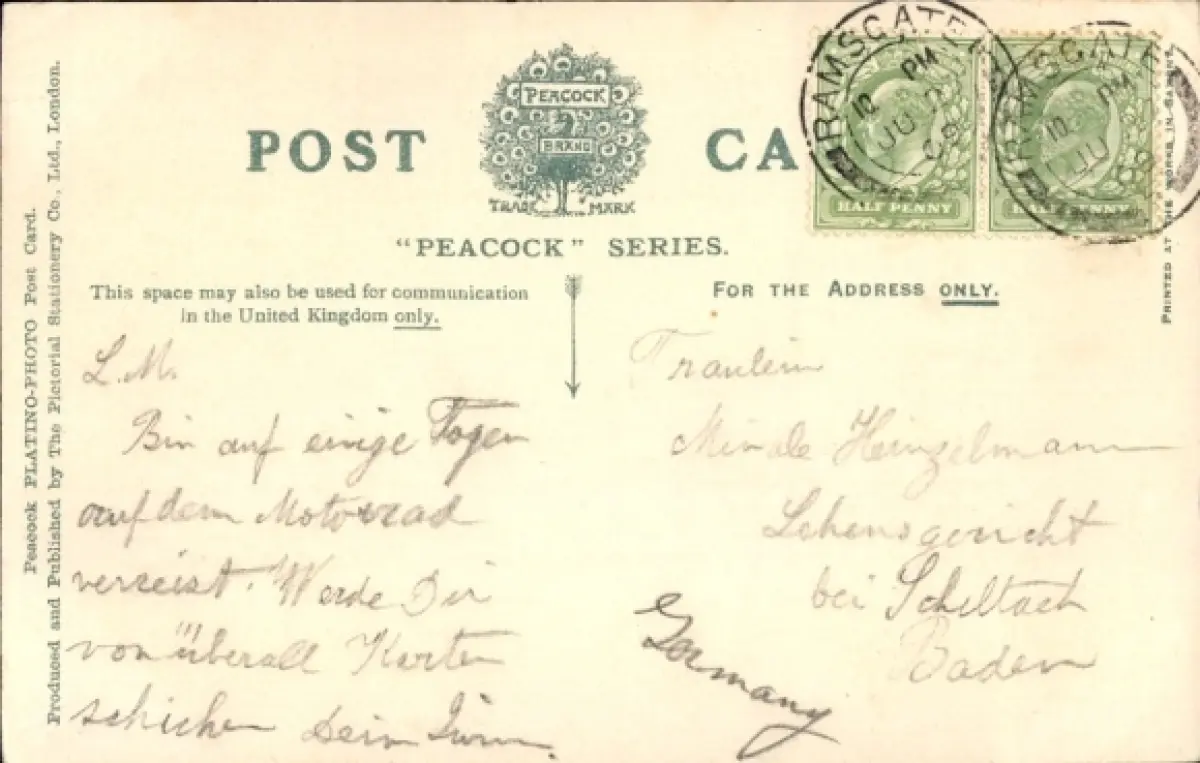 Peacock PLATINO-PHOTO Post Card.
Produced and Published by The Pictorial Stationery Co., Ltd., London.
POST CA
PEACOCK
BRAND
TRADE MARK
"PEACOCK" SERIES.
RAMSGATE
10 PM
JU
HALF PENNY
RAMSGATE
10 PM
JU
HALF PENNY
PRINTED AT THE WORKS IN SAXONY
This space may also be used for communication
in the United Kingdom only.
L. M.
Bin auf einige Tagen
auf dem Motorrad
verreist. Werde Dir
von überall Karten
schicken Dein
FOR THE ADDRESS ONLY.
Fräulein
Heinzelmann
Lehengericht
bei Schiltach
Baden
Germany